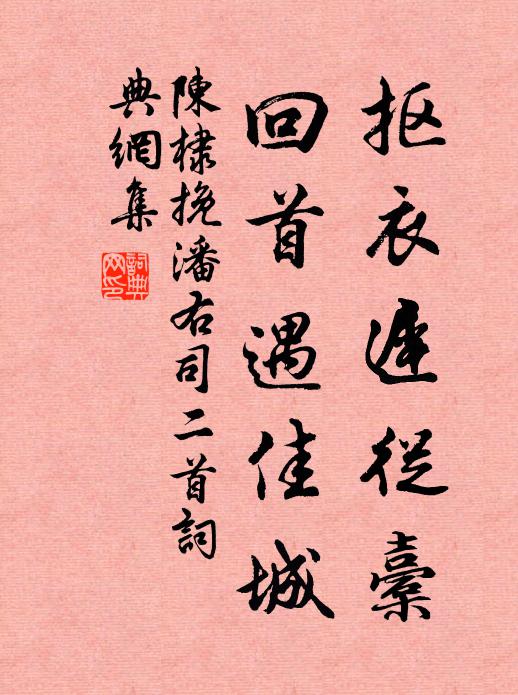 抠衣遲從橐
回首遇佳城
陳棣挽潘右司二首詞
典網集
詞典
网印